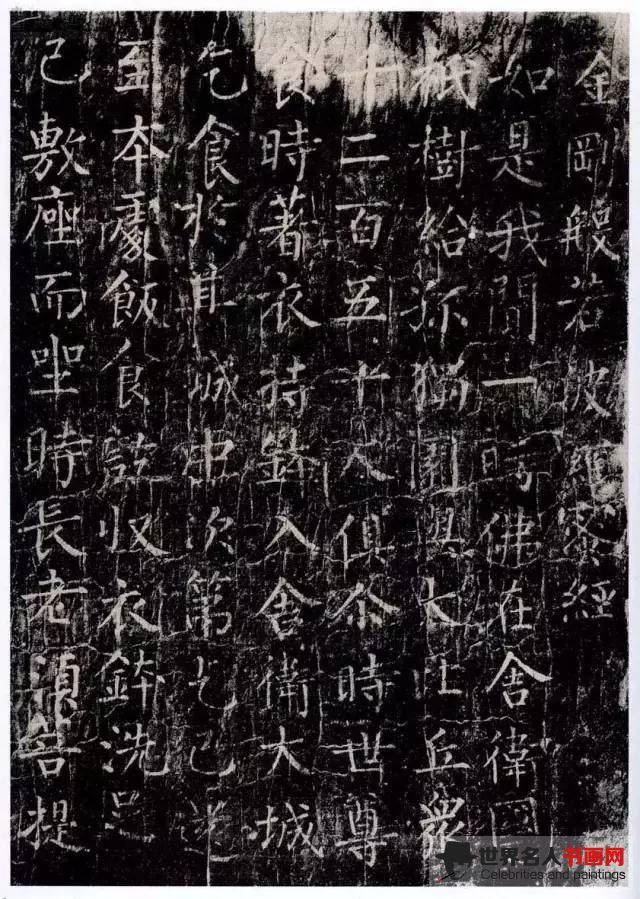 金剛般若波羅蜜經
如是我聞一時佛在舍衛國
祇樹給孤獨園與大比丘眾
千二百五十人俱尒時世尊
食時著衣持鉢入舍衛大城
乞食於其城中次第乞已還
至本處飯食訖収衣鉢洗足
已敷座而坐時長老須菩提
世界名人书画网
Celebrities and paintings